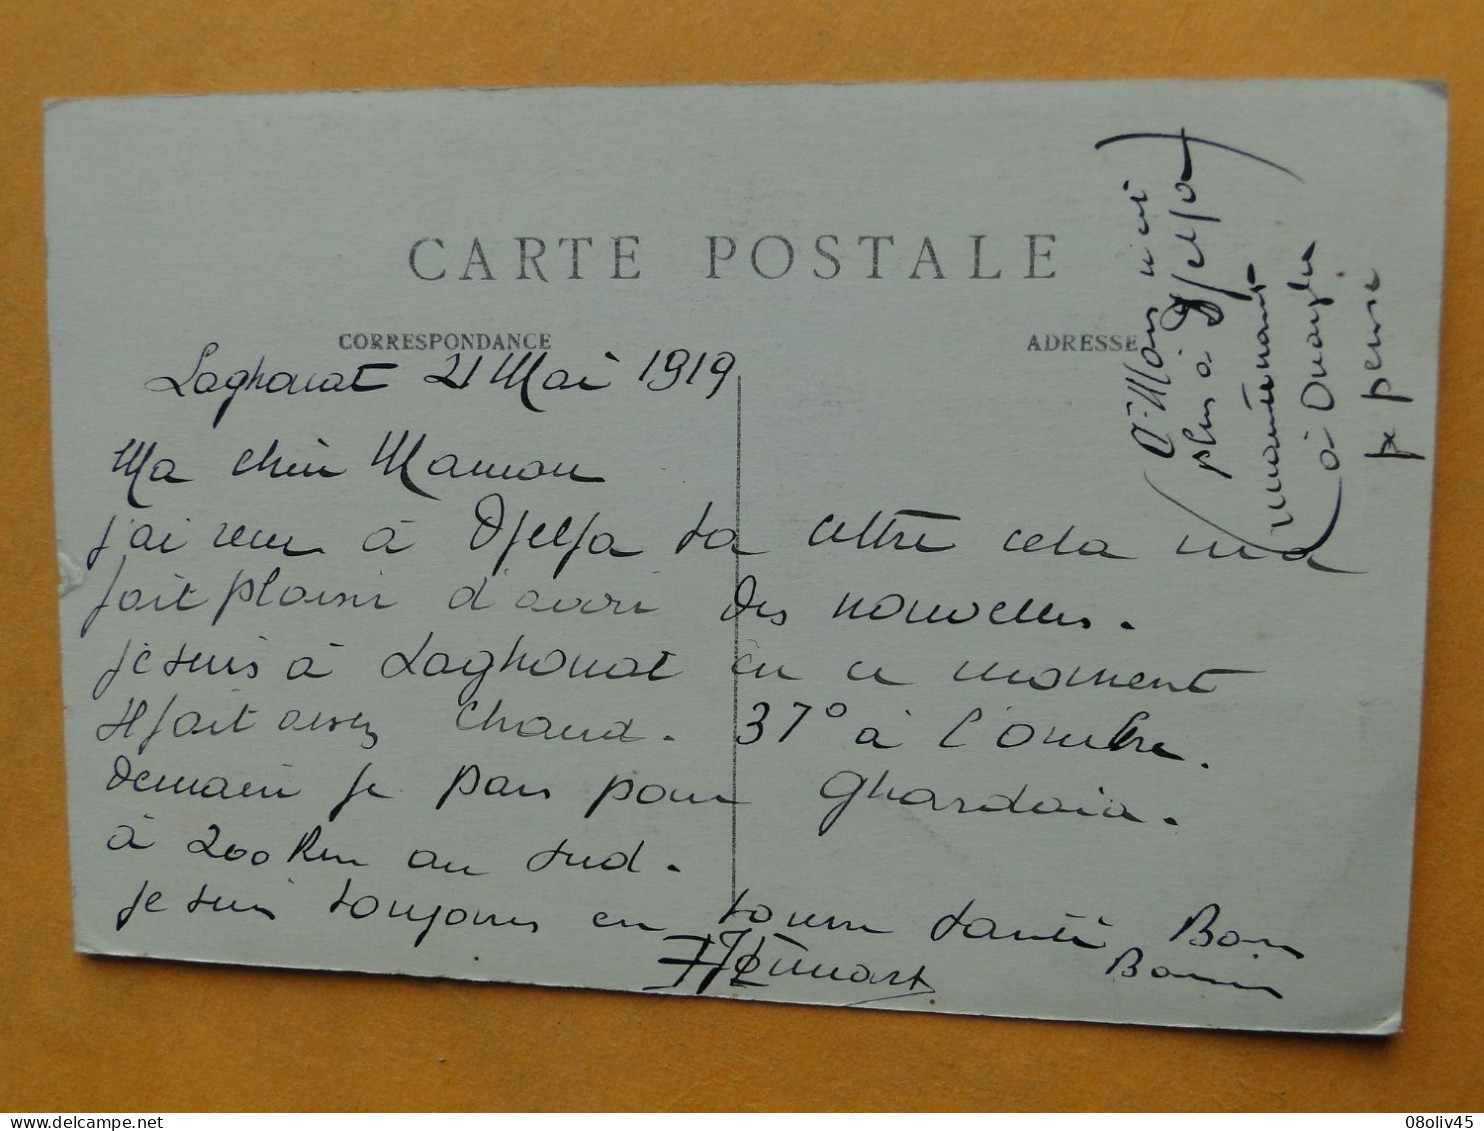 CARTE POSTALE
CORRESPONDANCE
ADRESSE
Laghouat 21 Mai 1919
Ma chère Maman
j'ai reçu à Djelfa ta lettre cela m'a
fait plaisir d'avoir des nouvelles.
je suis à Laghouat en ce moment
Il fait assez chaud. 37° à l'ombre.
Demain je pars pour Ghardaia.
à 200 Km au sud.
je suis toujours en bonne santé Bons
Baisers
(Mon n'est
plus à Djelfa)
maintenant
à Ouargla
je pense
08oliv45